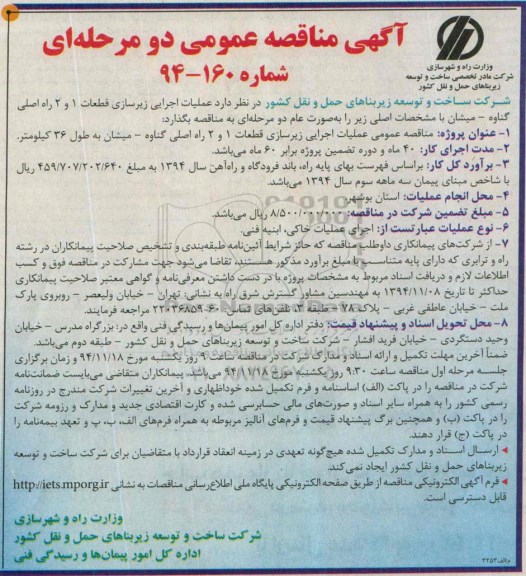 آگهی مناقصه عمومی دو مرحله‌ای
شماره ۱۶۰-۹۴
وزارت راه و شهرسازی
شرکت مادر تخصصی ساخت و توسعه
زیربناهای حمل و نقل کشور
شرکت ساخت و توسعه زیربناهای حمل و نقل کشور در نظر دارد عملیات اجرایی زیرسازی قطعات ۱ و ۲ راه اصلی
گناوه - میشان با مشخصات اصلی زیر را به‌صورت عام دو مرحله‌ای به مناقصه بگذارد:
۱- عنوان پروژه: مناقصه عمومی عملیات اجرایی زیرسازی قطعات ۱ و ۲ راه اصلی گناوه - میشان به طول ۳۶ کیلومتر.
۲- مدت اجرای کار: ۴۰ ماه و دوره تضمین پروژه برابر ۶۰ ماه می‌باشد.
۳- برآورد کل کار: براساس فهرست بهای پایه راه، باند فرودگاه و راه‌آهن سال ۱۳۹۴ به مبلغ ۴۵۹/۷۰۷/۲۰۲/۶۴۰ ریال
با شاخص مبنای پیمان سه ماهه سوم سال ۱۳۹۴ می‌باشد.
۴- محل انجام عملیات: استان بوشهر
۵- مبلغ تضمین شرکت در مناقصه: ۸/۵۰۰/۰۰۰/۰۰۰ ریال می‌باشد.
۶- نوع عملیات عبارتست از: اجرای عملیات خاکی، ابنیه فنی.
۷- از شرکت‌های پیمانکاری داوطلب مناقصه که حائز شرایط آئین‌نامه طبقه‌بندی و تشخیص صلاحیت پیمانکاران در رشته
راه و ترابری که دارای پایه متناسب با مبلغ برآورد مذکور هستند، تقاضا می‌شود جهت مشارکت در مناقصه فوق و کسب
اطلاعات لازم و دریافت اسناد مربوط به مشخصات پروژه با در دست داشتن معرفی‌نامه و گواهی معتبر صلاحیت پیمانکاری
حداکثر تا تاریخ ۱۳۹۴/۱۱/۰۸ به مهندسین مشاور گسترش شرق راه به نشانی: تهران - خیابان ولیعصر - روبروی پارک
ملت - خیابان عاطفی غربی - پلاک ۷۸ - طبقه ۳، تلفن‌های تماس ۶۰-۲۲۰۳۶۸۵۹ مراجعه فرمایند.
۸- محل تحویل اسناد و پیشنهاد قیمت: دفتر اداره کل امور پیمان‌ها و رسیدگی فنی واقع در: بزرگراه مدرس - خیابان
وحید دستگردی - خیابان فرید افشار - شرکت ساخت و توسعه زیربناهای حمل و نقل کشور - طبقه دوم می‌باشد.
ضمناً آخرین مهلت تکمیل و ارائه اسناد و مدارک شرکت در مناقصه ساعت ۹ روز یکشنبه مورخ ۹۴/۱۱/۱۸ و زمان برگزاری
جلسه مرحله اول مناقصه ساعت ۹:۳۰ روز یکشنبه مورخ ۹۴/۱۱/۱۸ می‌باشد. پیمانکاران متقاضی می‌بایست ضمانت‌نامه
شرکت در مناقصه را در پاکت (الف) اساسنامه و فرم تکمیل شده خوداظهاری و آخرین تغییرات شرکت مندرج در روزنامه
رسمی کشور را به همراه سایر اسناد و صورت‌های مالی حسابرسی شده و کارت اقتصادی جدید و مدارک و رزومه شرکت
را در پاکت (ب) و همچنین برگ پیشنهاد قیمت و فرم‌های آنالیز مربوطه به همراه فرم‌های الف، ب، پ و تعهد بیمه‌نامه را
در پاکت (ج) قرار دهند.
◄ ارسال اسناد و مدارک تکمیل شده هیچ‌گونه تعهدی در زمینه انعقاد قرارداد با متقاضیان برای شرکت ساخت و توسعه
زیربناهای حمل و نقل کشور ایجاد نمی‌کند.
◄ فرم آگهی الکترونیکی مناقصه از طریق صفحه الکترونیکی پایگاه ملی اطلاع‌رسانی مناقصات به نشانی http://iets.mporg.ir
قابل دسترسی است.
وزارت راه و شهرسازی
شرکت ساخت و توسعه زیربناهای حمل و نقل کشور
اداره کل امور پیمان‌ها و رسیدگی فنی